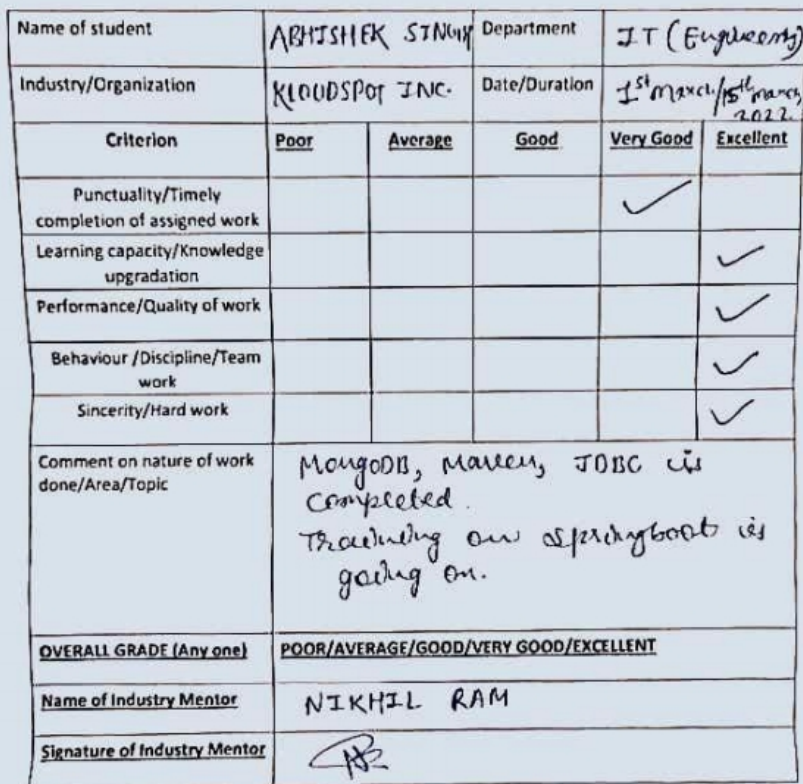 Name of student ABHISHEK SINGH Department IT (Engineering)
Industry/Organization KLOUDSPOT INC. Date/Duration 1st March/15th March, 2022.
Criterion Poor Average Good Very Good Excellent
Punctuality/Timely
completion of assigned work ✓
Learning capacity/Knowledge
upgradation ✓
Performance/Quality of work ✓
Behaviour /Discipline/Team
work ✓
Sincerity/Hard work ✓
Comment on nature of work
done/Area/Topic
MongoDB, Maven, JDBC is
completed.
Training on springboot is
going on.
OVERALL GRADE (Any one) POOR/AVERAGE/GOOD/VERY GOOD/EXCELLENT
Name of Industry Mentor NIKHIL RAM
Signature of Industry Mentor